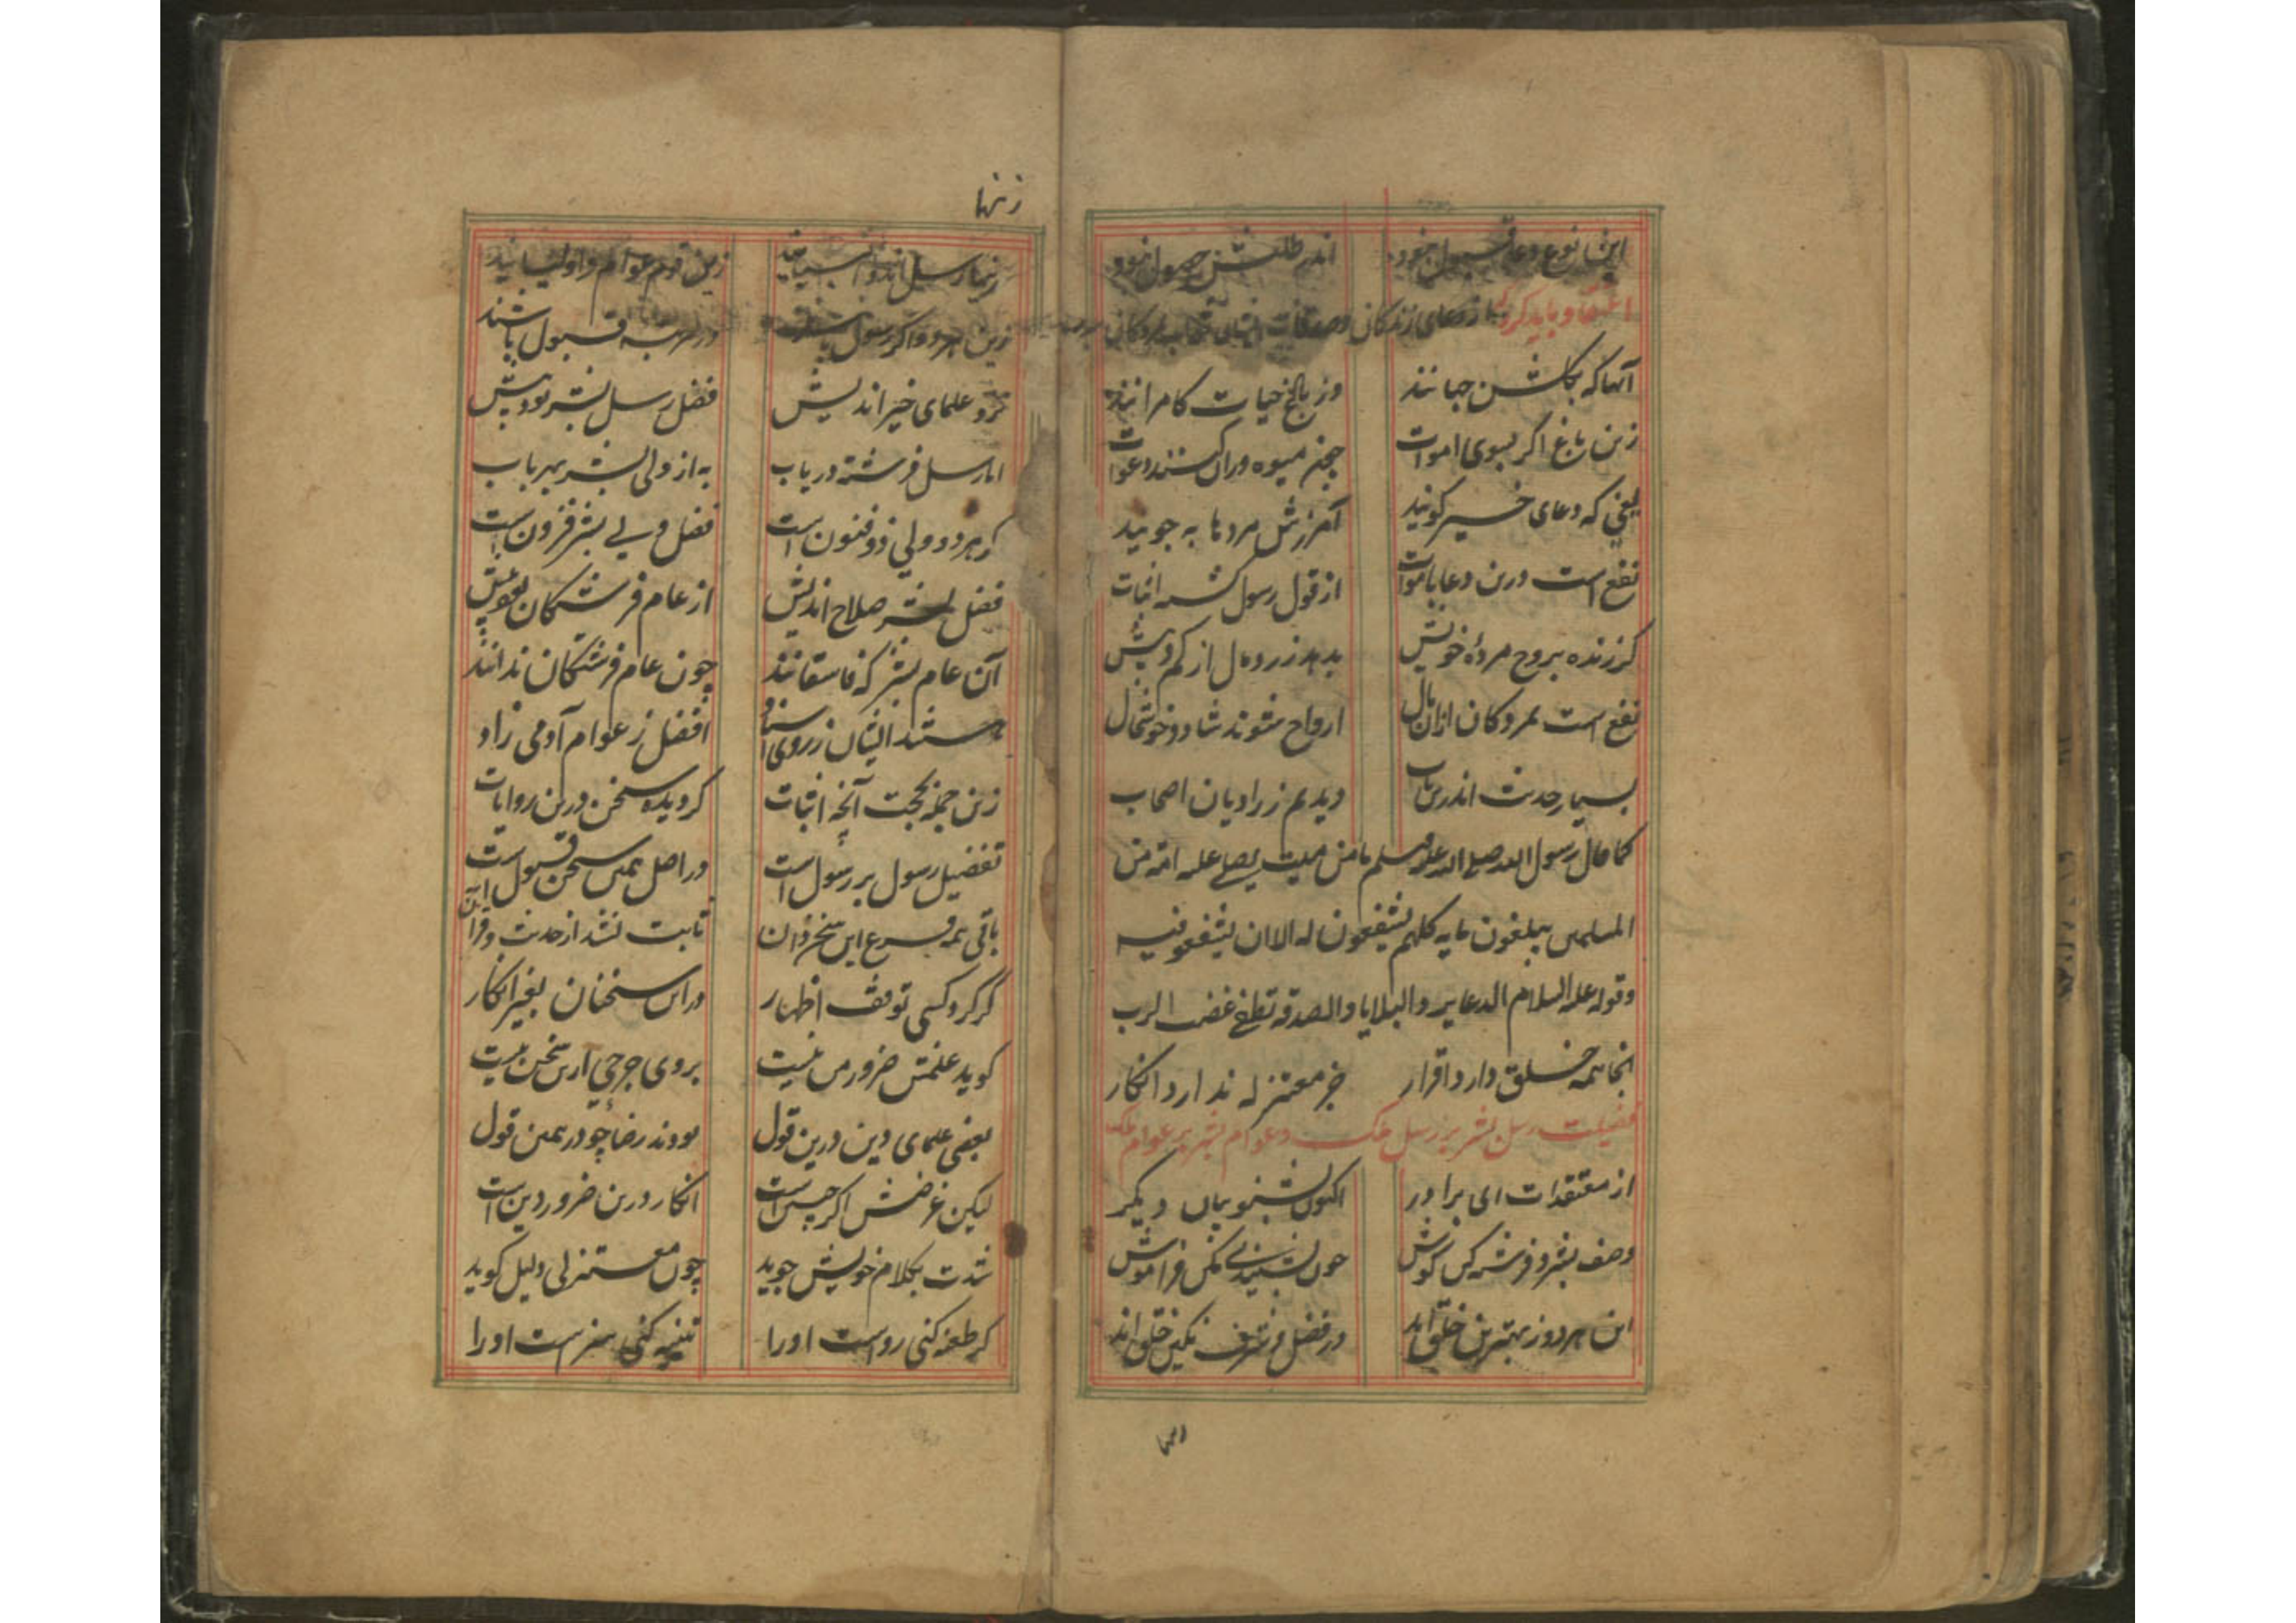 این نوع دعا قبول نبود اندر طلبش حصول نبود
اعتقاد باید کرد از دعای زندگان و صدقات ایشان
آنها که بگلشن جهانند وز باغ حیات کامرانند
زین باغ اگر بسوی اموات چینند میوه وران کنند دعوات
یعنی که دعای خیر گویند آمرزش مردها به جویند
نفع است درین دعا باموات از قول رسول شد اثبات
گر زنده بروح مردهٔ خویش بدهد زر و مال از کم و بیش
نفع است بمردگان ازان مال ارواح شوند شاد و خوشحال
بسیار حدیث اندرین باب دیدیم ز راویان اصحاب
کما قال رسول الله صلی الله علیه وسلم ما من میت یصلی علیه امة من
المسلمین یبلغون مایه کلهم یشفعون له الا ان یشفعو فیه
وقوله علیه السلام الدعا یرد البلایا والصدقه تطفئ غضب الرب
انجا همه خلق دارد اقرار جز معتزله ندارد انکار
فضیلت رسل بشر بر رسل ملک و عوام بشر بر عوام ملک
از معتقدات ای برادر اکنون بشنو بیان دیگر
وصف بشر و فرشته کن گوش چون بشنیدی مکن فراموش
این هر دو ز بهترین خلق اند در فضل و شرف نگین خلق اند
رسا
زنها
زینها رسل اند و انبیایند زین قوم عوام و اولیایند
زین هر دو اگر رسول باشند در مرتبه قبول باشند
نزد علمای خیر اندیش فضل رسل بشر بود بیش
اما رسل فرشته دریاب به از ولی بشر بهر باب
کز هر دو ولی ذوفنون است فضل ولی بشر فزون است
فضل بشر صلاح اندیش از عام فرشتگان بود بیش
آن عام بشر که فاسقانند چون عام فرشتگان ندانند
هستند ایشان ز روی اسناد افضل ز عوام آدمی زاد
زین جمله بحجت آنچه اثبات گردیده سخن درین روایات
تفضیل رسول بر رسول است در اصل همین سخن قبول است
باقی همه فرع این سخن دان ثابت نشد از حدیث و قرآن
گر کرد کسی توقف اظهار در این سخنان بغیر انکار
گوید علمش ضرور من نیست بروی جرحی ازین سخن نیست
بعضی علمای دین درین قول بودند رضا چو در همین قول
لیکن غرضش اگر چنین است انکار درین ضرور دین است
شدت بکلام خویش جوید چون معتزلی دلیل گوید
گر طعنه کنی رواست او را تنبیه کنی سزاست او را